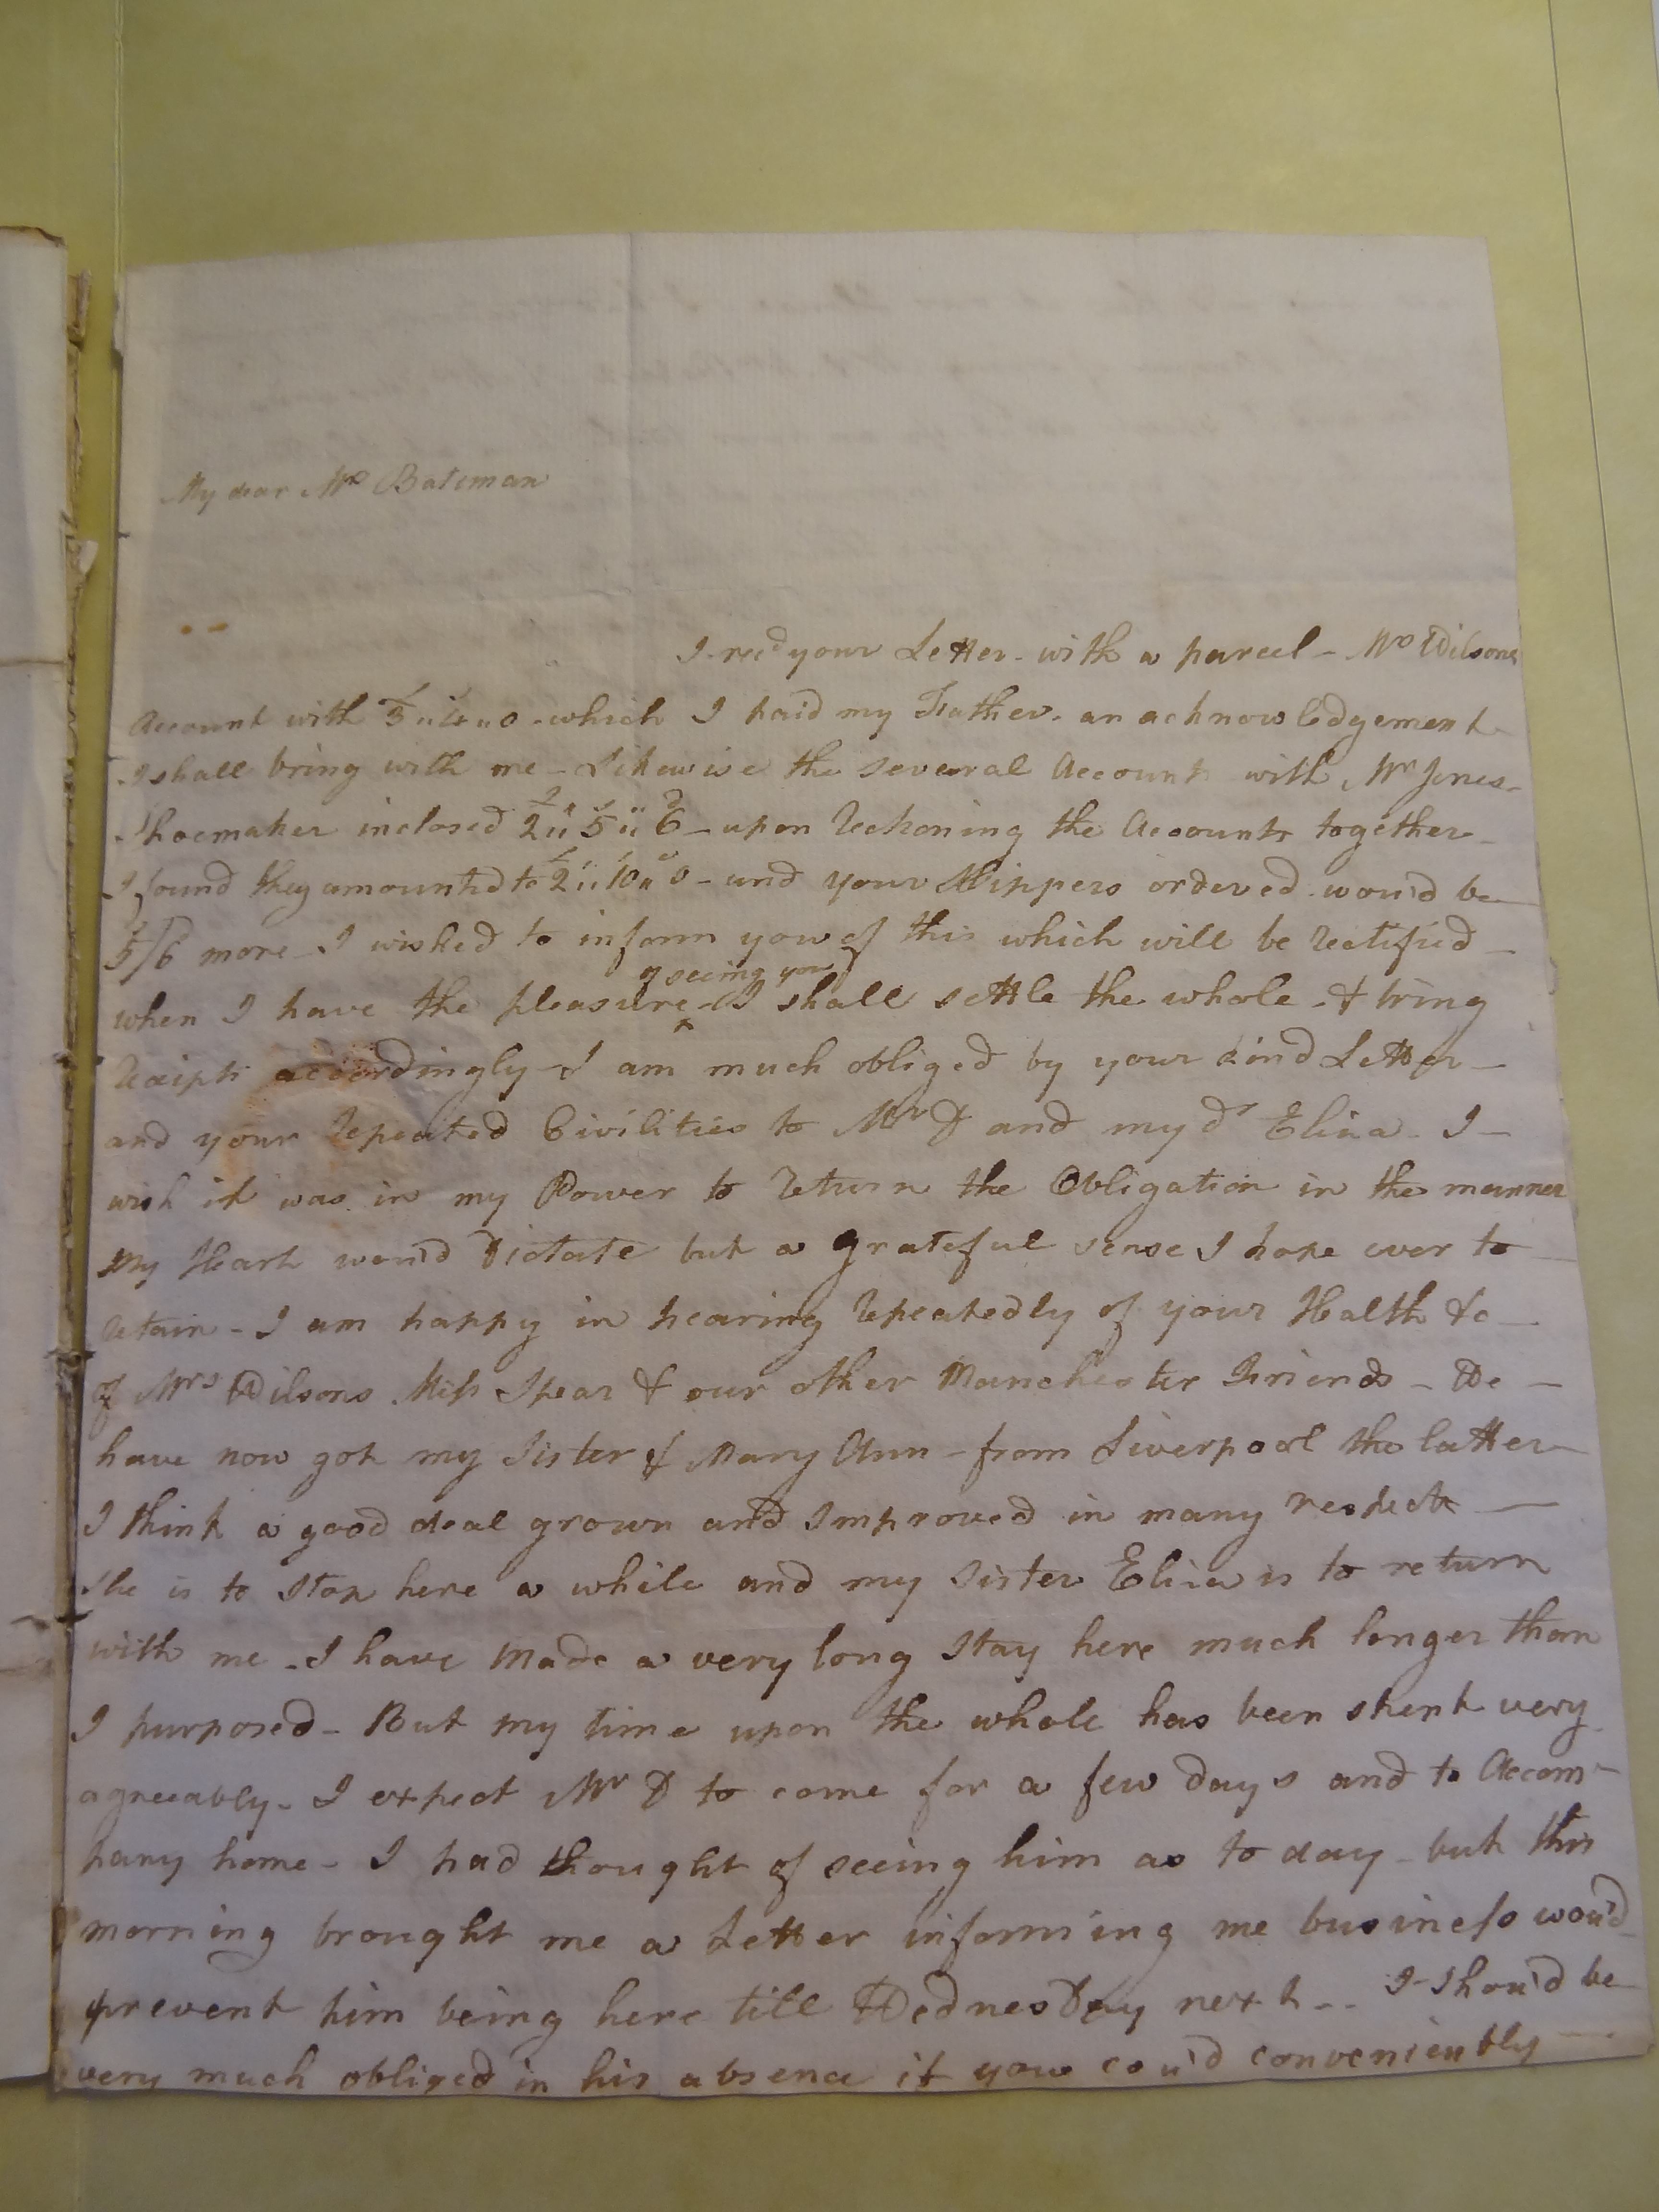 My dear Mrs Bateman
I recd your Letter with a parcel - Mrs Wilsons
Account with £3 " 4 " 0 - which I paid my Father. an acknowledgement
I shall bring with me - Likewise the several Accounts with Mr Jones -
Shoemaker inclosed 2 " 5 " 6 - upon Reckoning the Accounts together -
I found they amounted to 2 " 10 " 0 - and your Slippers ordered wou'd be
5/6 more - I wished to inform you of this which will be Rectified -
of seeing you
when I have the pleasure ^ - I shall settle the whole - & bring
Receipts accordingly - I am much obliged by your kind Letter -
and your Repeated Civilities to Mr D and my dr Eliza - I -
wish it was in my Power to Return the Obligation in the manner
My Heart wou'd Dictate but a grateful sense I hope ever to
Retain - I am happy in hearing Repeatedly of your Health &c -
of Mrs Wilsons Miss Spear & our other Manchester Friends - We -
have now got my Sister & Mary Ann - from Liverpool the latter -
I think a good deal grown and Improved in many respects -
she is to stop here a while and my Sister Eliza is to return
with me - I have Made a very long Stay here much longer than
I purposed - But my time upon the whole has been spent very
agreeably - I expect Mr D to come for a few days and to Accom-
pany home - I had thought of seeing him as to day - but this
morning brought me a Letter informing me business wou'd
prevent him being here till Wednesday next - - I shou'd be
very much obliged in his absence if you cou'd conveniently